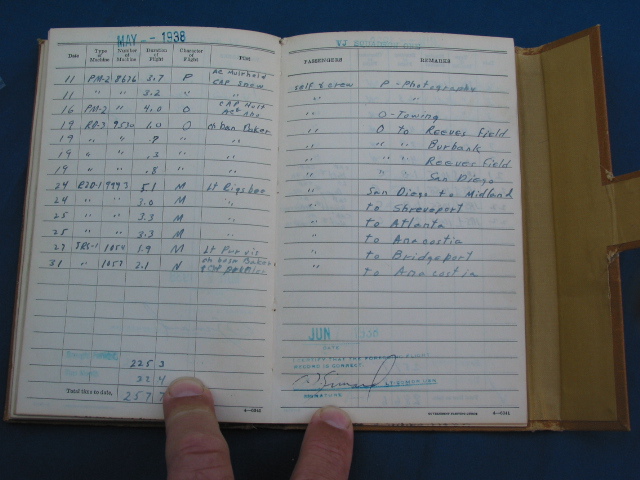 MAY - 1938
VJ SQUADRON
Date Type of Machine Number of Machine Duration of Flight Character of Flight PILOT PASSENGERS REMARKS
11 PM-2 8676 3.7 P self & crew P - Photography
11 " " 3.2 " " "
16 PM-2 " 4.0 O " O - Towing
19 9530 1.0 O " O to Reeves Field
19 " " .7 " " " " " Burbank
19 " " .3 " " " " Reeves Field
19 " " .8 " " " " " San Diego
24 R2D-1 9993 5.1 M Lt Rigsbee " San Diego to Midland
24 " " 3.0 M " " to Shreveport
25 " " 3.3 M " " to Atlanta
25 " " 3.3 M " " to Anacostia
27 1054 1.9 M Lt Purvis " to Bridgeport
31 " 1057 2.1 N " to Anacostia
JUN 1938
Date
I CERTIFY THAT THE FOREGOING FLIGHT
RECORD IS CORRECT.
SIGNATURE
225 3
32 4
Total time to date, 257 7
4-6041
GOVERNMENT PRINTING OFFICE 4-6041